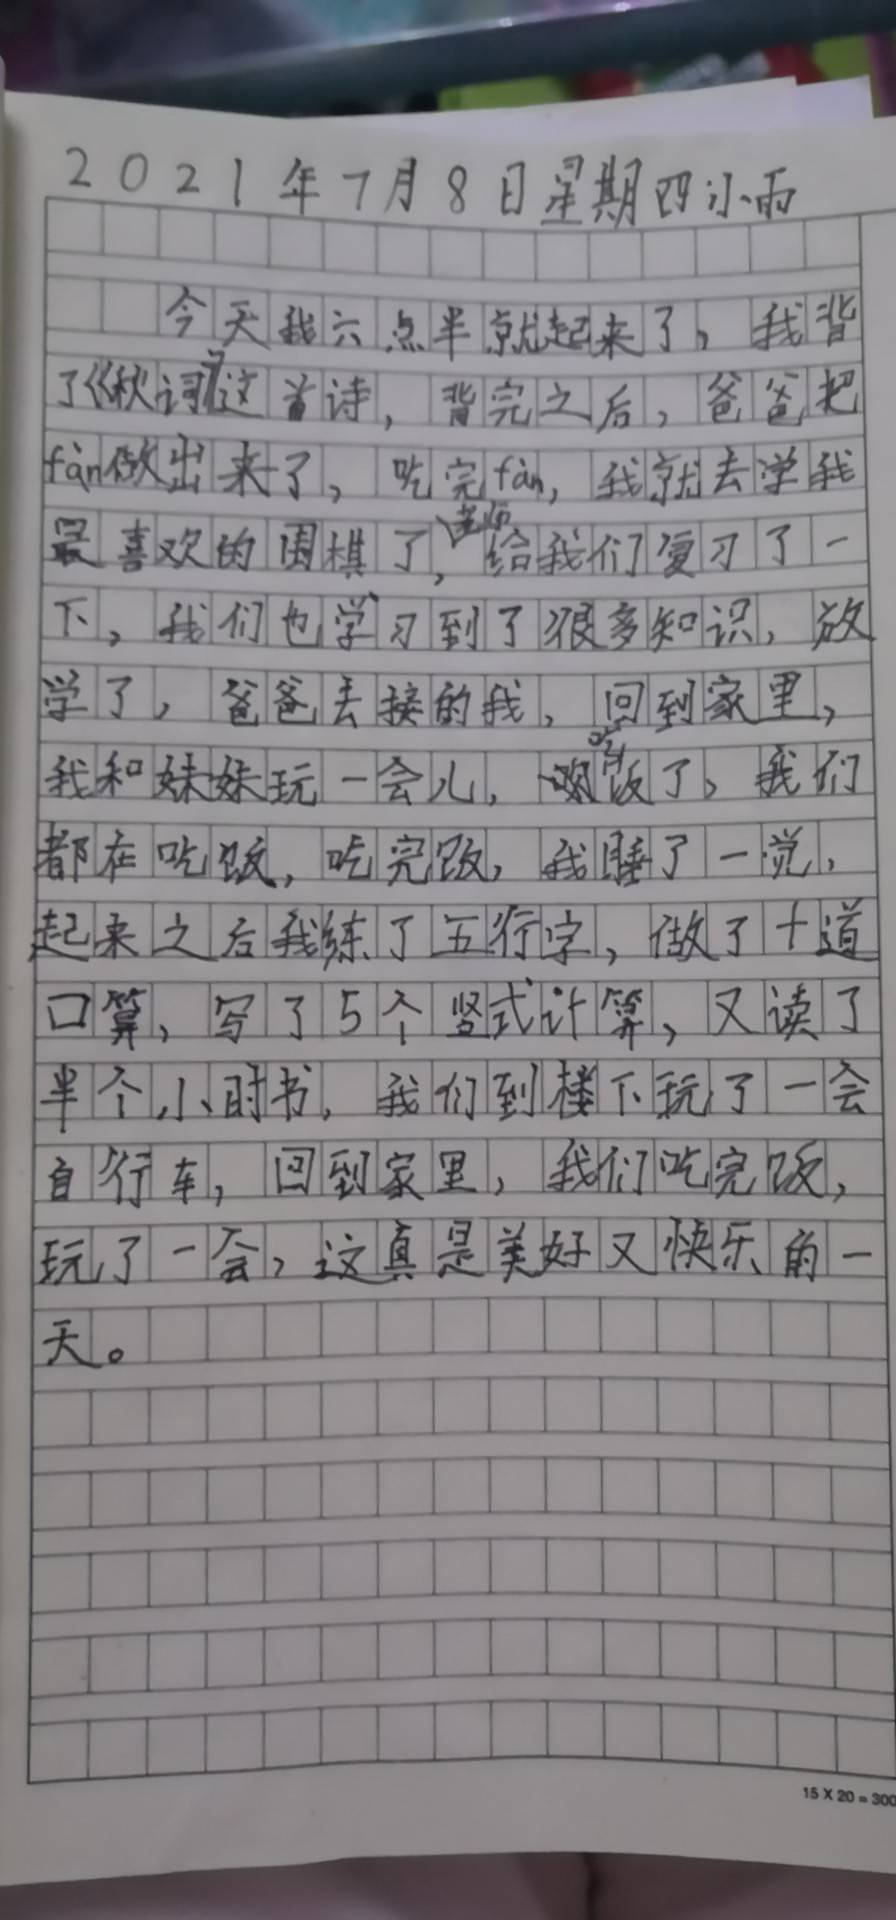 2021年7月8日星期四小雨
今天我六点半就起来了，我背
了《秋词》这首诗，背完之后，爸爸把
fàn做出来了，吃完fàn，我就去学我
最喜欢的围棋了，老师给我们复习了一
下，我们也学习到了很多知识，放
学了，爸爸去接的我，回到家里，
我和妹妹玩一会儿，吃饭了，我们
都在吃饭，吃完饭，我睡了一觉，
起来之后我练了五行字，做了十道
口算，写了5个竖式计算，又读了
半个小时书，我们到楼下玩了一会
自行车，回到家里，我们吃完饭，
玩了一会，这真是美好又快乐的一
天。
15×20=300